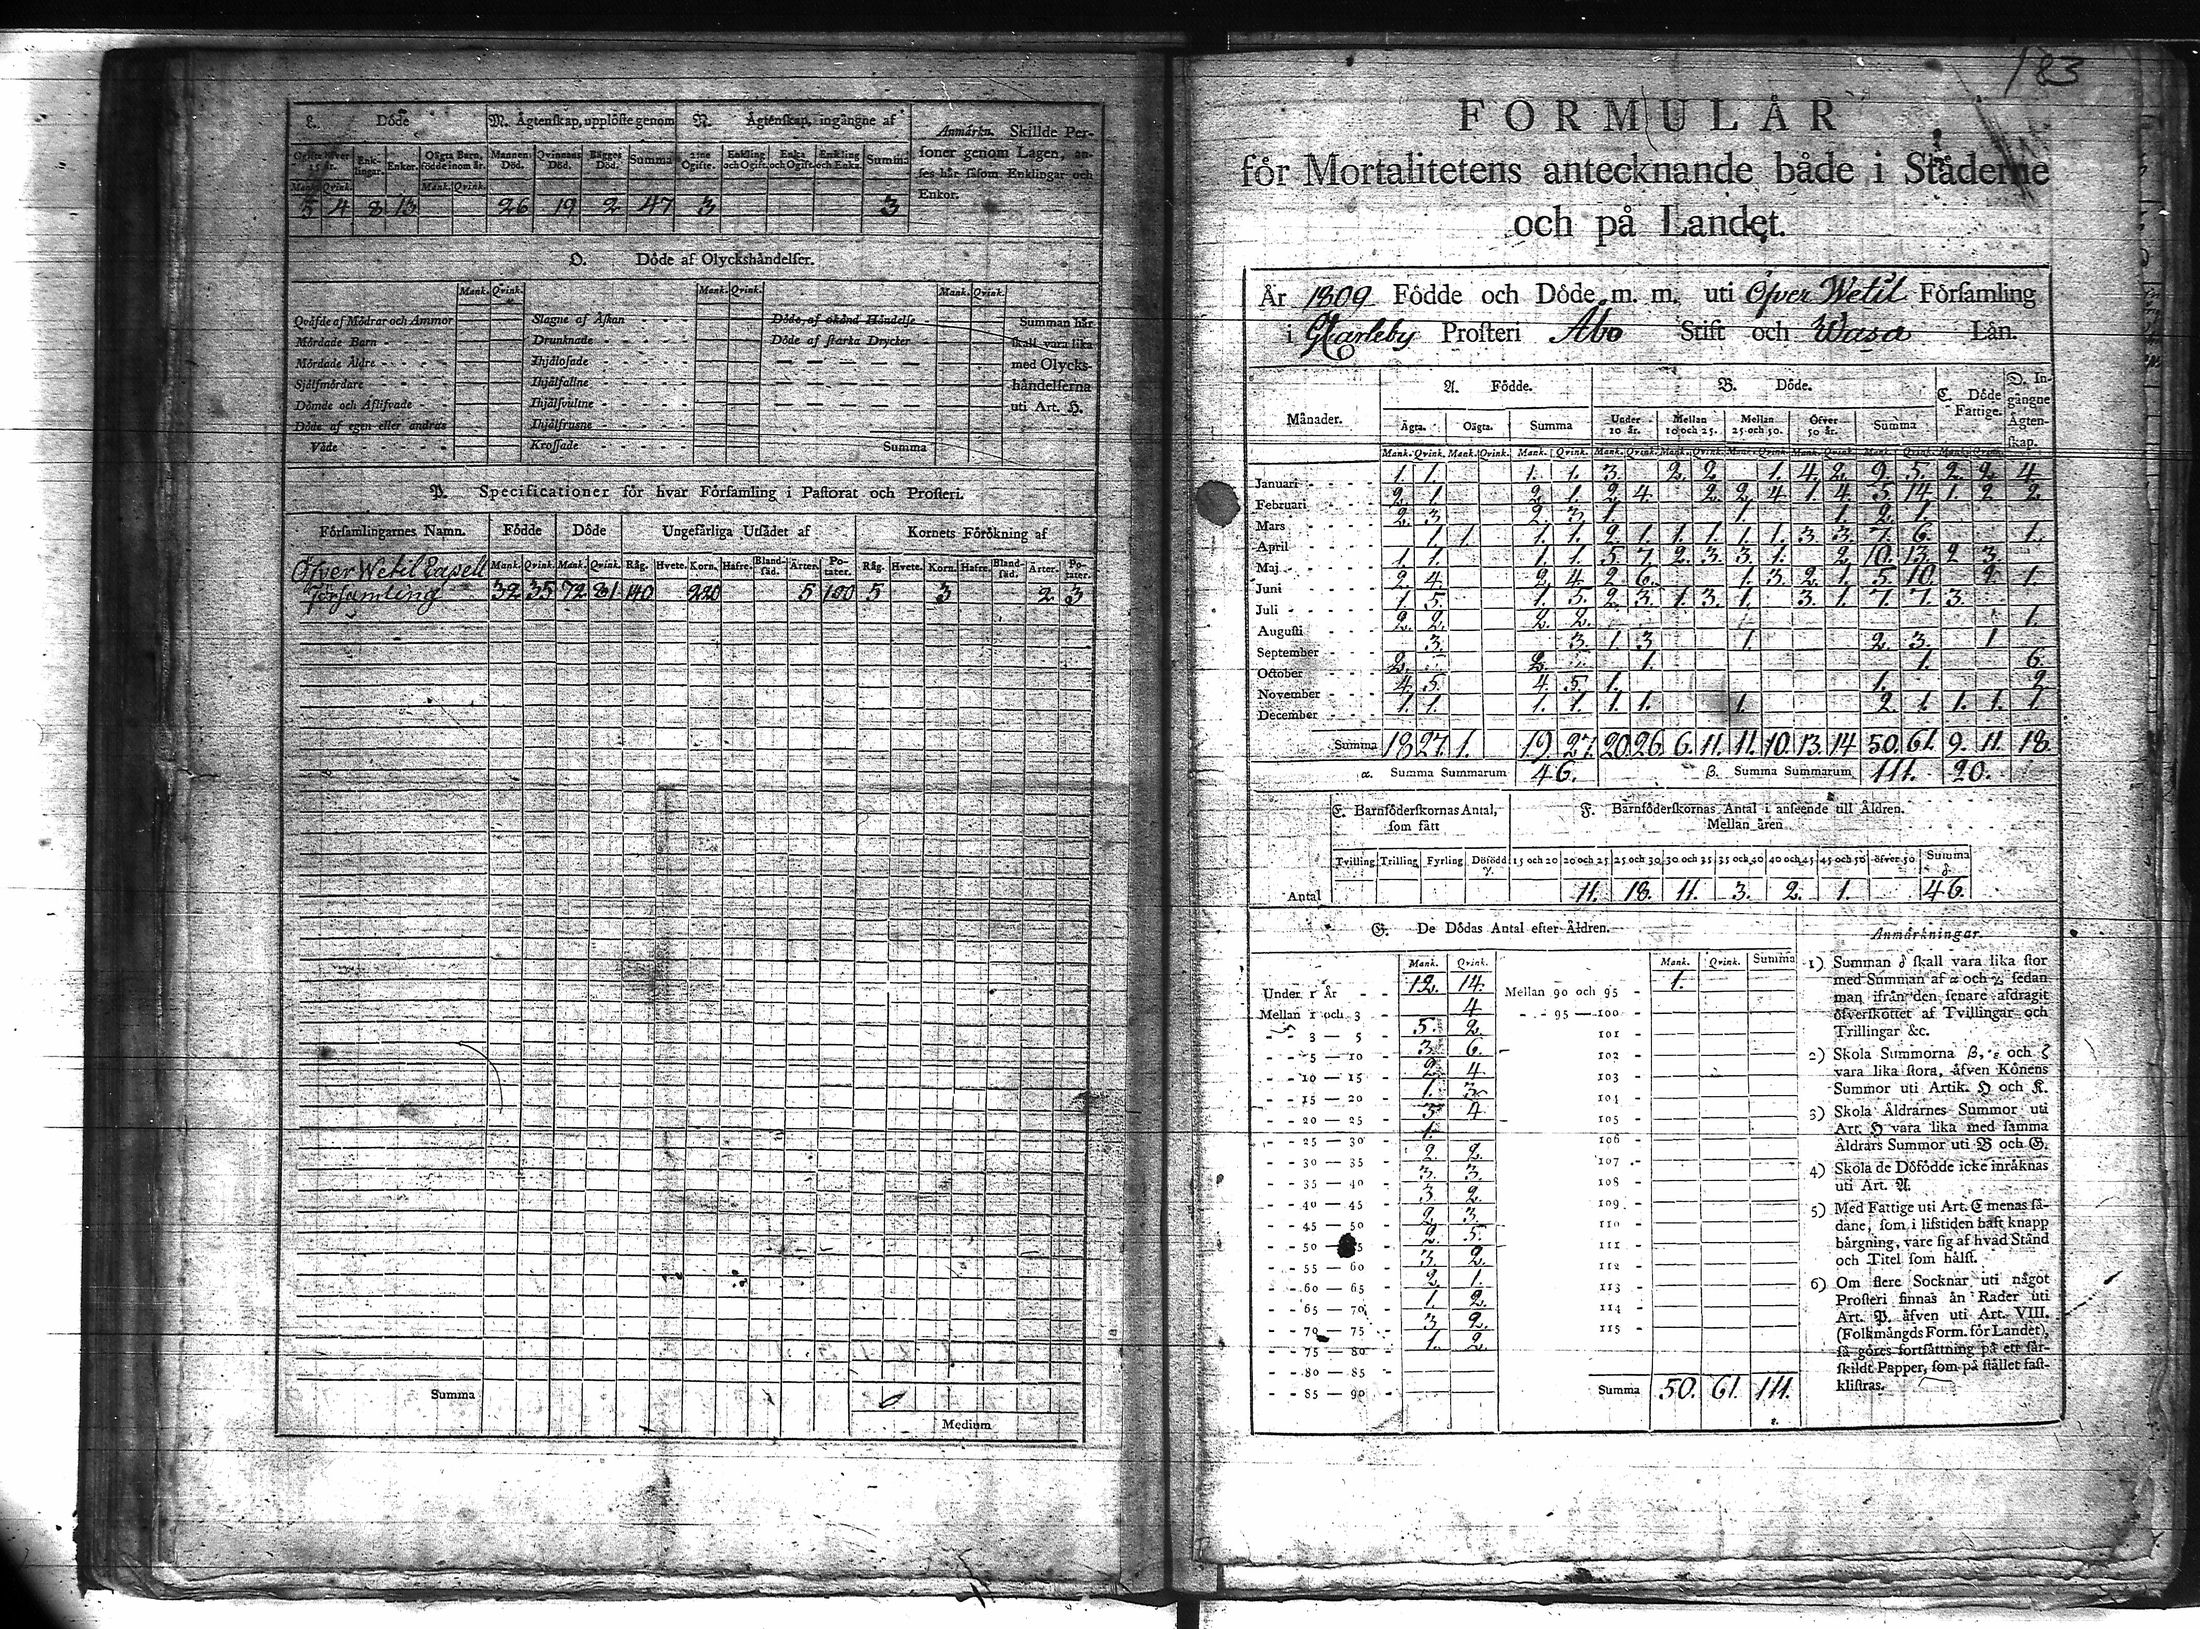 L. Döde
M. Ägtenskap, upplöste genom
N. Ägtenskap, ingångne af
Anmärkn. Skillde Personer genom Lagen, anses här såsom Enklingar och Enkor.
Ogifte öfver 15 år. Enklingar. Enkor. Oägta Barn, födde inom år. Mannens Död. Qvinnans Död. Bägges Död. Summa 2:ne Ogifte. Enkling och Ogift. Enka och Ogift. Enkling och Enka. Summa
Mank. Qvink. Mank. Qvink.
5 4 8 13 26 19 2 47 3 3
O. Döde af Olyckshändelser.
Mank. Qvink. Mank. Qvink. Mank. Qvink.
Qväfde af Mödrar och Ammor Slagne af Åskan Döde, af okänd Händelse Summan här
Mördade Barn Drunknade Döde af starka Drycker skall vara lika
Mördade Äldre Ihjälosade med Olycks-
Självmördare Ihjälfallne händelserna
Dömde och Aflifvade Ihjälsvultne uti Art. H.
Döde af egen eller andras Ihjälfrusne
Våde Krossade Summa
P. Specificationer för hvar Församling i Pastorat och Prosteri.
Församlingarnes Namn. Födde Döde Ungefärliga Utsädet af Kornets Förökning af
Mank. Qvink. Mank. Qvink. Råg. Hvete. Korn. Hafre. Blandsäd. Ärter. Potater. Råg. Hvete. Korn. Hafre. Blandsäd. Ärter. Potater.
Öfver Wetil Capell
församling 32 35 72 81 140 220 5 100 5 3 2 3
Summa
Medium
183
FORMULÄR
för Mortalitetens antecknande både i Städerne
och på Landet.
År 1809 Födde och Döde m. m. uti Öfver Wetil Församling
i GCarleby Prosteri Åbo Stift och Wasa Län.
Månader. A. Födde. B. Döde. C. Döde Fattige. D. Ingångne Ägtenskap.
Ägta. Oägta. Summa Under 10 år. Mellan 10 och 25. Mellan 25 och 50. Öfver 50 år. Summa
Mank. Qvink. Mank. Qvink. Mank. Qvink. Mank. Qvink. Mank. Qvink. Mank. Qvink. Mank. Qvink. Mank. Qvink. Mank. Qvink.
Januari 1. 1. 1. 1. 3. 2. 2. 1. 4. 2. 9. 5. 2. 2. 4.
Februari 2. 1. 2. 1. 2. 4. 2. 2. 4 1. 4. 5. 14. 1. 2 2.
Mars 2. 3. 2. 3. 1. 1. 1. 2. 1.
April 1. 1. 1. 1. 2. 1. 1. 1. 1. 1. 3. 3. 7. 6. 1.
Maj 1. 1. 1. 1. 5. 7. 2. 3. 3. 1. 2. 10. 13. 2. 3.
Juni 2. 4. 2. 4. 2. 6. 1. 3. 2. 1. 5. 10. 2. 1.
Juli 1. 5. 1. 5. 2. 3. 1. 3. 1. 3. 1. 7. 7. 3.
Augusti 2. 2. 2. 2. 1.
September 3. 3. 1. 3. 1. 2. 3. 1
October 2. 2. 1. 1. 6.
November 4. 5. 4. 5. 1. 1. 2
December 1. 1. 1. 1. 1. 1. 1. 2. 1. 1. 1. 1
Summa 18 27. 1. 19. 27. 20. 26. 6. 11. 11. 10. 13. 14 50. 61. 9. 11. 18.
α. Summa Summarum 46. β. Summa Summarum 111. 20.
E. Barnföderskornas Antal, som fått
F. Barnföderskornas Antal i anseende till Åldren.
Mellan åren
Tvilling Trilling Fyrling Dödfödd γ. 15 och 20 20 och 25 25 och 30 30 och 35 35 och 40 40 och 45 45 och 50 öfver 50 Summa δ
Antal 11. 18. 11. 3. 2. 1. 46.
G. De Dödas Antal efter Åldren.
Mank. Qvink. Mank. Qvink. Summa
Under 1 År 12. 14. Mellan 90 och 95 1.
Mellan 1 och 3 4 95 — 100
3 — 5 5. 2. 101
5 — 10 3. 6. 102
10 — 15 2 4 103
15 — 20 1. 3. 104
20 — 25 3 4 105
25 — 30 1. 106
30 — 35 2. 2. 107
35 — 40 3. 3. 108
40 — 45 3 2. 109
45 — 50 2. 3. 110
50 — 55 2. 5. 111
55 — 60 3. 2. 112
60 — 65 2. 1. 113
65 — 70 1. 2. 114
70 — 75 3 2. 115
75 — 80 1. 2.
80 — 85
85 — 90 Summa 50. 61. 111.
ε.
Anmärkningar.
1) Summan δ skall vara lika stor
med Summan af α och γ, sedan
man ifrån den senare afdragit
öfverskottet af Tvillingar och
Trillingar &c.
2) Skola Summorna β, ε och ζ
vara lika stora, äfven Könens
Summor uti Artik. H och K.
3) Skola Åldrarnes Summor uti
Art. H vara lika med samma
Åldrars Summor uti B och G.
4) Skola de Döfödde icke inräknas
uti Art. A.
5) Med Fattige uti Art. C menas så-
dane, som i lifstiden haft knapp
bärgning, vare sig af hvad Stånd
och Titel som hälst.
6) Om flere Socknar uti något
Prosteri finnas än Rader uti
Art. P. äfven uti Art. VIII.
(Folkmängds Form. för Landet),
så göres fortsättning på ett sär-
skildt Papper, som på stället fast-
klistras.